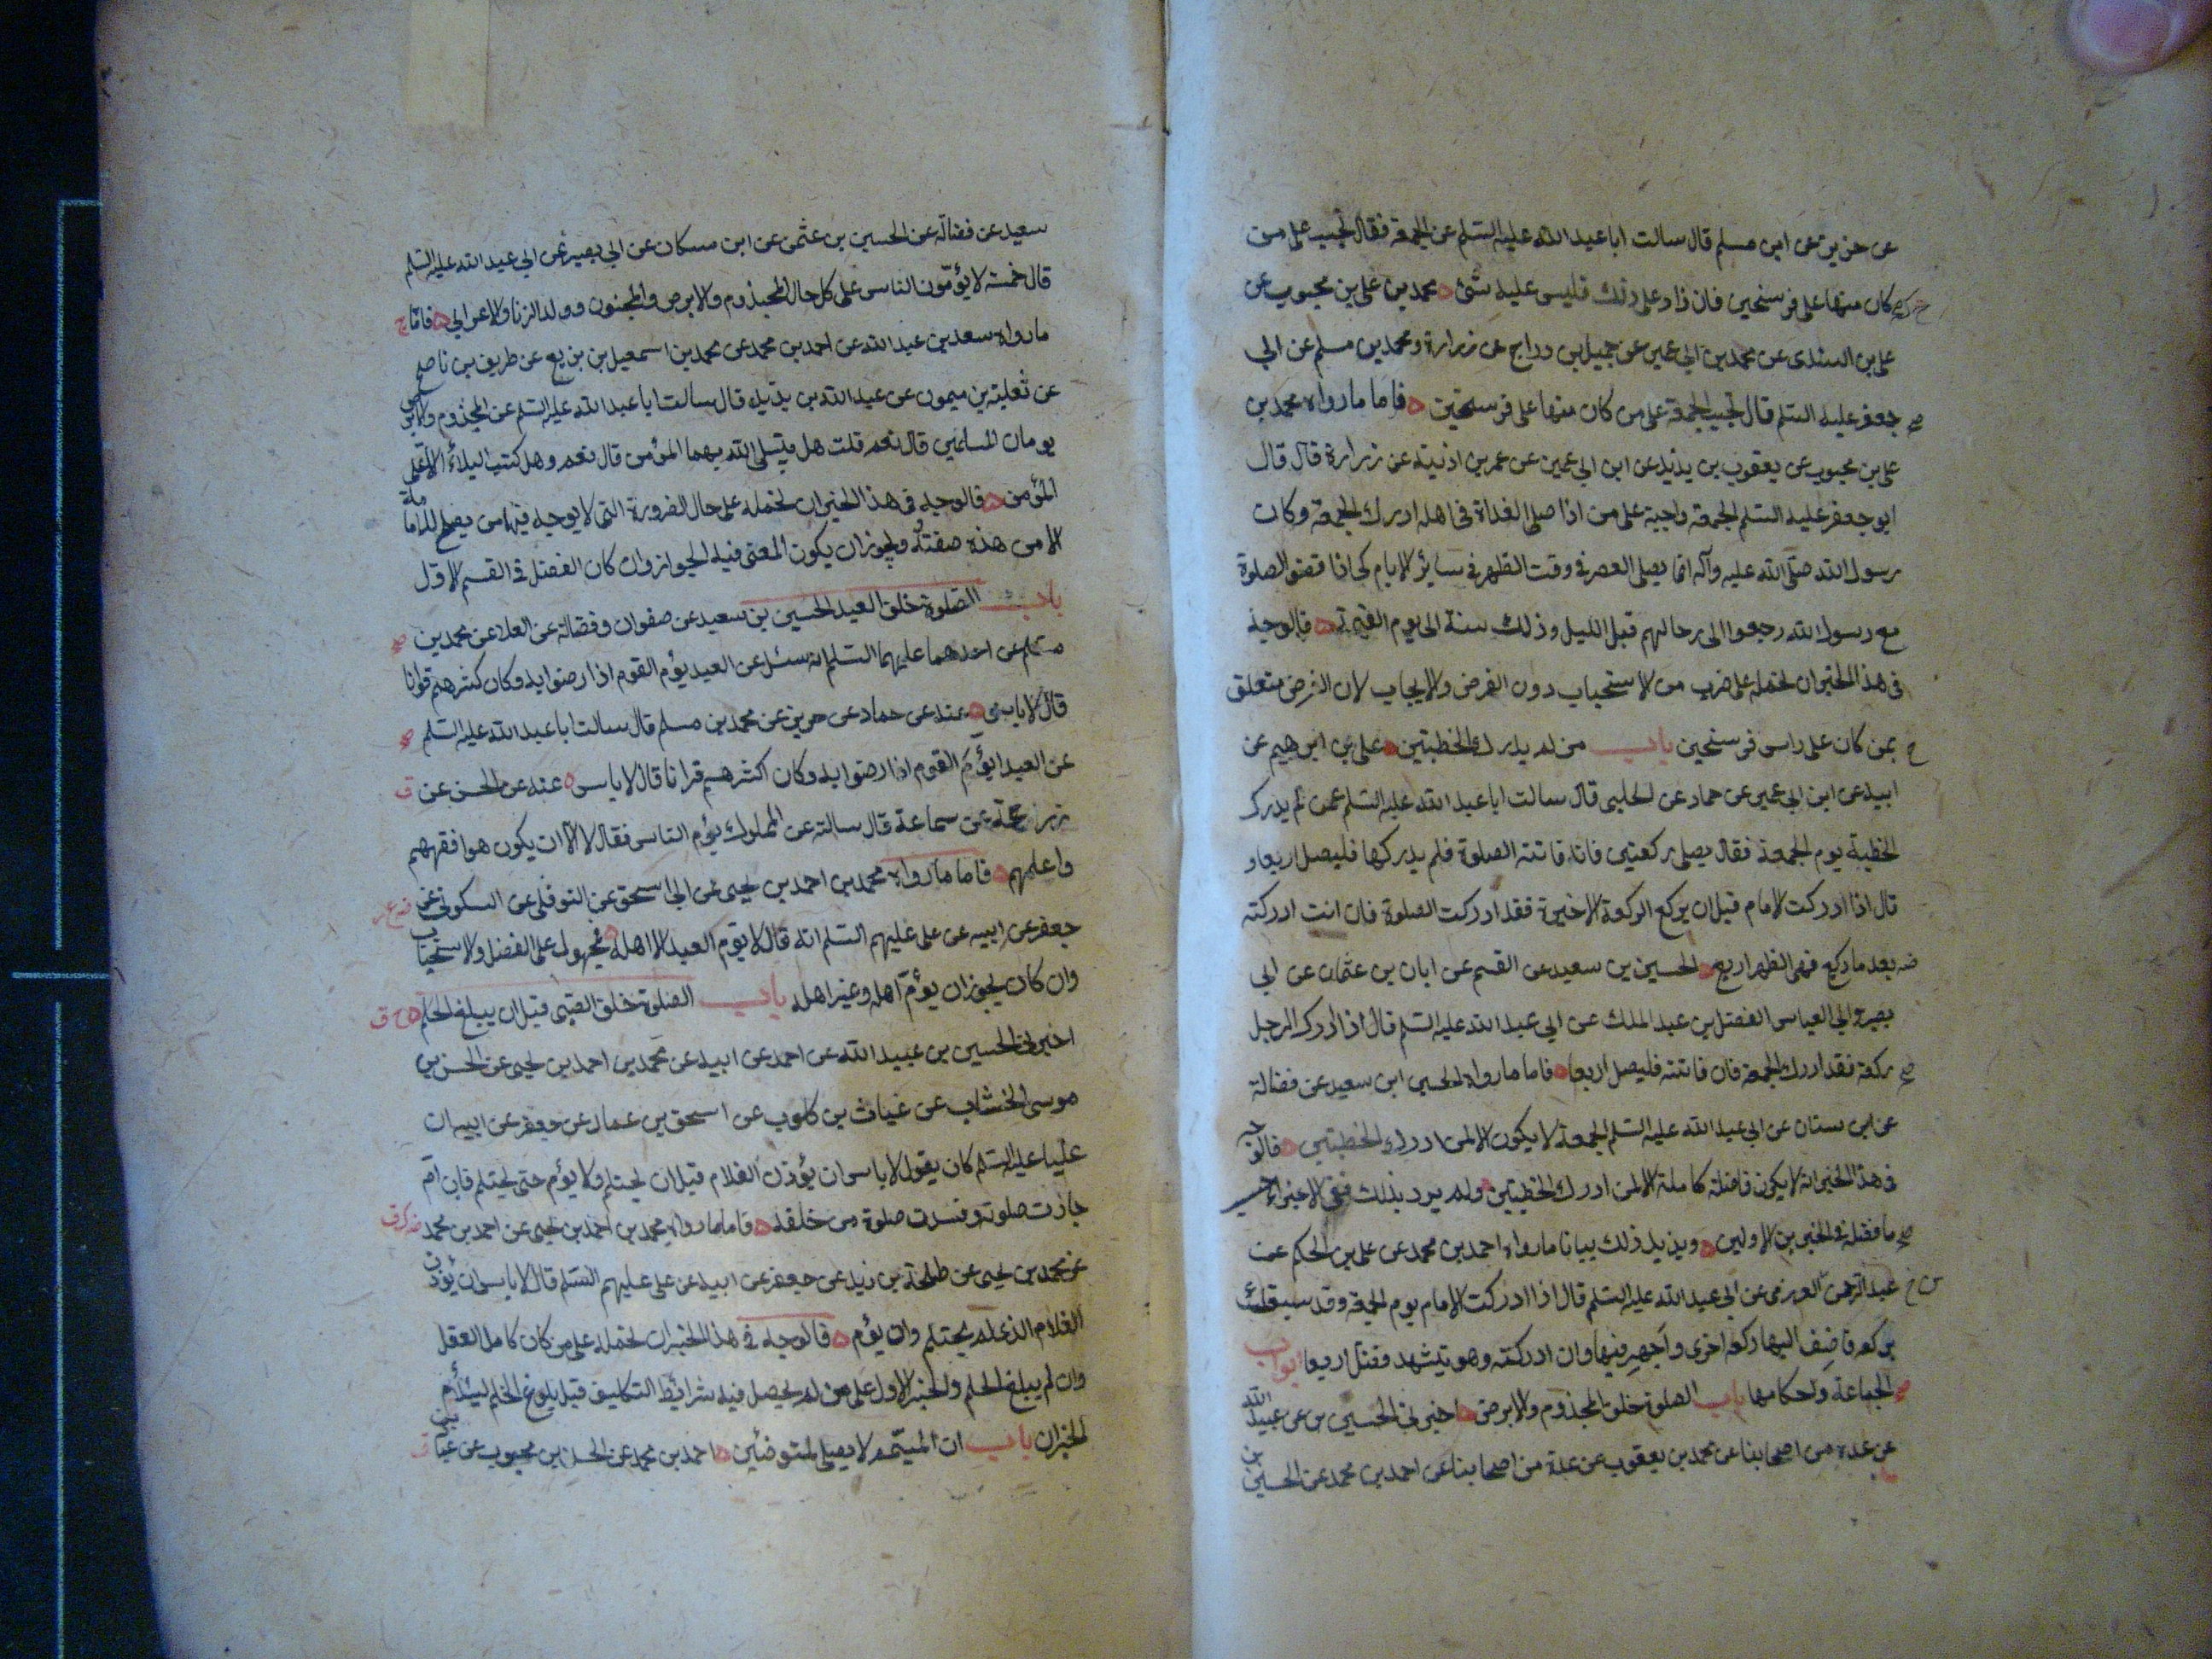 عن حريز عن ابن مسلم قال سالت ابا عبد الله عليه السلم عن الجمعة فقال تجب على من
كان منها على فرسخين فان زاد على ذلك فليس عليه شئ محمد بن علي بن محبوب عن
علي بن السندى عن محمد بن ابي عمير عن جميل بن دراج عن زرارة ومحمد بن مسلم عن ابي
جعفر عليه السلم قال تجب الجمعة على من كان منها على فرسخين فاما ما رواه محمد بن
علي بن محبوب عن يعقوب بن يزيد عن ابن ابي عمير عن عمر بن اذينة عن زرارة قال قال
ابو جعفر عليه السلم الجمعة واجبة على من اذا صلى الغداة فى اهله ادرك الجمعة وكان
رسول الله صلى الله عليه وآله انما يصلى العصر فى وقت الظهر فى سائر الايام كى اذا قضوا الصلوة
مع رسول الله رجعوا الى رحالهم قبل الليل وذلك سنة الى يوم القيمة فالوجه
فى هذا الخبر ان نحمله على ضرب من الاستحباب دون الفرض والايجاب لان الفرض متعلق
بمن كان على راس فرسخين باب من لم يدرك الخطبتين علي بن ابرهيم عن
ابيه عن ابن ابي عمير عن حماد عن الحلبى قال سالت ابا عبد الله عليه السلم عمن لم يدرك
الخطبة يوم الجمعة فقال يصلى ركعتين فان فاتته الصلوة فلم يدركها فليصل اربعا و
قال اذا ادركت الامام قبل ان يركع الركعة الاخيرة فقد ادركت الصلوة فان انت ادركته
بعد ما ركع فهى الظهر اربع الحسين بن سعيد عن القسم عن ابان بن عثمان عن ابي
بصير وابي العباس الفضل بن عبد الملك عن ابي عبد الله عليه السلم قال اذا ادرك الرجل
ركعة فقد ادرك الجمعة فان فاتته فليصل اربعا فاما ما رواه الحسين ابن سعيد عن فضالة
عن ابن سنان عن ابي عبد الله عليه السلم الجمعة لا يكون الا لمن ادرك الخطبتين فالوجه
فى هذا الخبر انه لا يكون فاضلة كاملة الا لمن ادرك الخطبتين ولم يرد بذلك نفى الاجزاء
ما فصله فى الخبرين الاولين ويزيد ذلك بيانا ما رواه احمد بن محمد عن علي بن الحكم عن
عبد الرحمن العرزمى عن ابي عبد الله عليه السلم قال اذا ادركت الامام يوم الجمعة وقد سبقك
بركعة فاضف اليها ركعة اخرى واجهر فيها وان ادركته وهو يتشهد فصل اربعا ابواب
الجماعة واحكامها باب الصلوة خلف المجذوم والابرص اخبرنى الحسين بن عبيد الله
عن عدة من اصحابنا عن محمد بن يعقوب عن عدة من اصحابنا عن احمد بن محمد عن الحسين بن
سعيد عن فضالة عن الحسين بن عثمن عن ابن مسكان عن ابي بصير عن ابي عبد الله عليه السلم
قال خمسة لا يؤمون الناس على كل حال المجذوم والابرص والمجنون وولد الزنا والاعرابي فاما
ما رواه سعد بن عبد الله عن احمد بن محمد عن محمد بن اسمعيل بن بزيع عن ظريف بن ناصح
عن ثعلبة بن ميمون عن عبد الله بن يزيد قال سالت ابا عبد الله عليه السلم عن المجذوم والابرص
يومان المسلمين قال نعم قلت هل يبتلى الله بهما المؤمن قال نعم وهل كتب البلاء الا على
المؤمن فالوجه فى هذا الخبر ان نحمله على حال الضرورة التى لا يوجد فيها من يصلح للامامة
الا من هذه صفته ويجوز ان يكون المعنى فيه الجواز وان كان الفضل فى القسم الاول
باب الصلوة خلف العبد الحسين بن سعيد عن صفوان وفضالة عن العلا عن محمد بن
مسلم عن احدهما عليهما السلم انه سئل عن العبد يؤم القوم اذا رضوا به وكان اكثرهم قرانا
قال لا باس عنه عن حماد عن حريز عن محمد بن مسلم قال سالت ابا عبد الله عليه السلم
عن العبد ايؤم القوم اذا رضوا به وكان اكثرهم قرانا قال لا باس عنه عن الحسن عن
زرعة عن سماعة قال سالته عن المملوك يؤم الناس فقال لا الا ان يكون هو افقههم
واعلمهم فاما ما رواه محمد بن احمد بن يحيى عن ابي اسحق عن النوفلى عن السكونى عن
جعفر عن ابيه عن على عليهم السلم انه قال لا يؤم العبد الا اهله محمول على الفضل والاستحباب
وان كان يجوز ان يؤم اهله وغير اهله باب الصلوة خلف الصبى قبل ان يبلغ الحلم
اخبرنى الحسين بن عبيد الله عن احمد عن ابيه عن محمد بن احمد بن يحيى عن الحسن بن
موسى الخشاب عن غياث بن كلوب عن اسحق بن عمار عن جعفر عن ابيه ان
عليا عليه السلم كان يقول لا باس ان يؤذن الغلام قبل ان يحتلم ولا يؤم حتى يحتلم فان ام
جازت صلوته وفسدت صلوة من خلفه فاما ما رواه محمد بن احمد بن يحيى عن احمد بن محمد
عن محمد بن يحيى عن طلحة بن زيد عن جعفر عن ابيه عن على عليهم السلم قال لا باس ان يؤذن
الغلام الذى لم يحتلم وان يؤم فالوجه فى هذا الخبر ان نحمله على من كان كامل العقل
وان لم يبلغ الحلم والخبر الاول على من لم يحصل فيه شرائط التكليف قبل بلوغ الحلم ليتلأم
الخبران باب ان المتيمم لا يصلى بالمتوضئين احمد بن محمد عن الحسن بن محبوب عن عباد